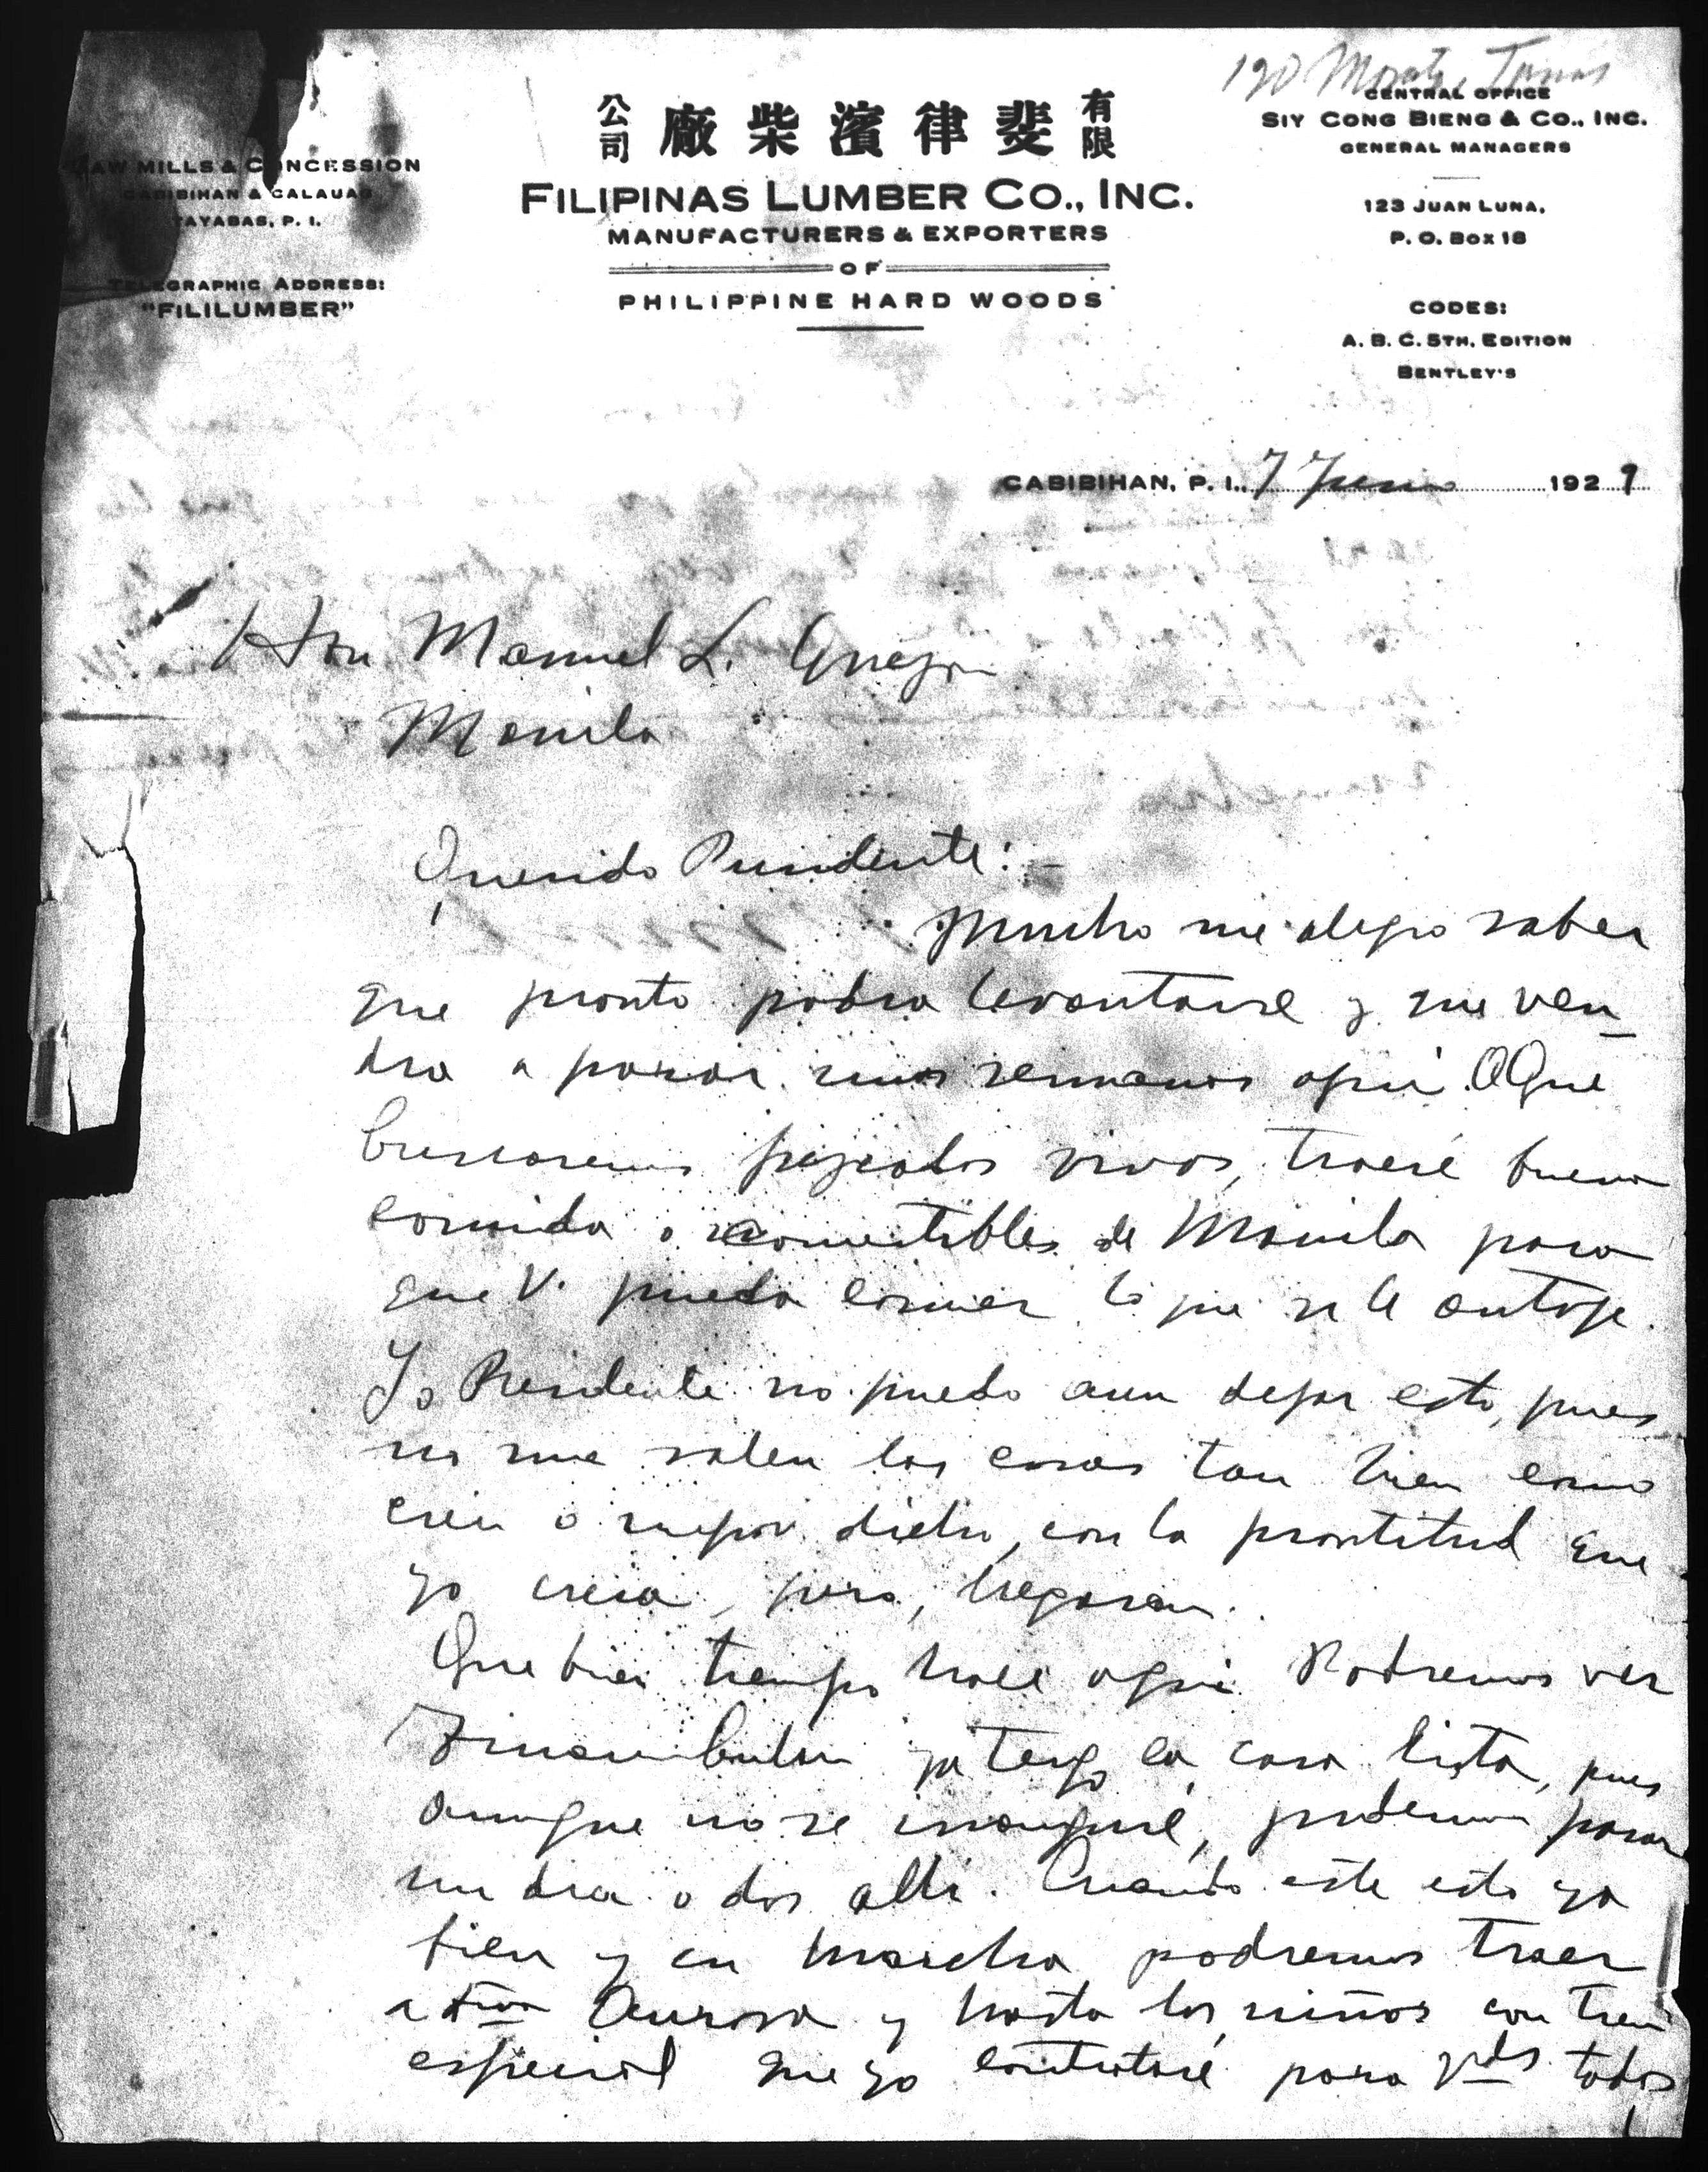 190 Monte
公司 廠柴濱律斐 有限
SAW MILLS & CONCESSION
CABIBIHAN & CALAUAG
TAYABAS, P. I.
TELEGRAPHIC ADDRESS:
"FILILUMBER"
FILIPINAS LUMBER CO., INC.
MANUFACTURERS & EXPORTERS
OF
PHILIPPINE HARD WOODS
CENTRAL OFFICE
SIY CONG BIENG & CO., INC.
GENERAL MANAGERS
123 JUAN LUNA,
P. O. BOX 18
CODES:
A. B. C. 5TH. EDITION
BENTLEY'S
CABIBIHAN, P. I., 7 Junio 1929
Hon Manuel L. Quezon
Manila
Querido Presidente:-
Mucho me alegro saber
que pronto podra levantarse y que ven-
dra a pasar unas semanas aqui. Que
buscaremos pescados vivos, traeré buena
comida o comestibles de Manila para
que V. pueda comer lo que se le antoje.
Yo Presidente no puedo aun dejar esto, pues
no me salen las cosas tan bien como
crei o mejor dicho, con la prontitud que
yo creia, pero, llegaran.
Que buen tiempo hace aqui Podremos ver
ya tengo la casa lista, pues
aunque no se inaugure, podemos pasar
un dia o dos alli. Cuando este esto ya
bien y en marcha podremos traer
a Dña Aurora y hasta los niños con tren
especial que yo contrataré para Vds todos